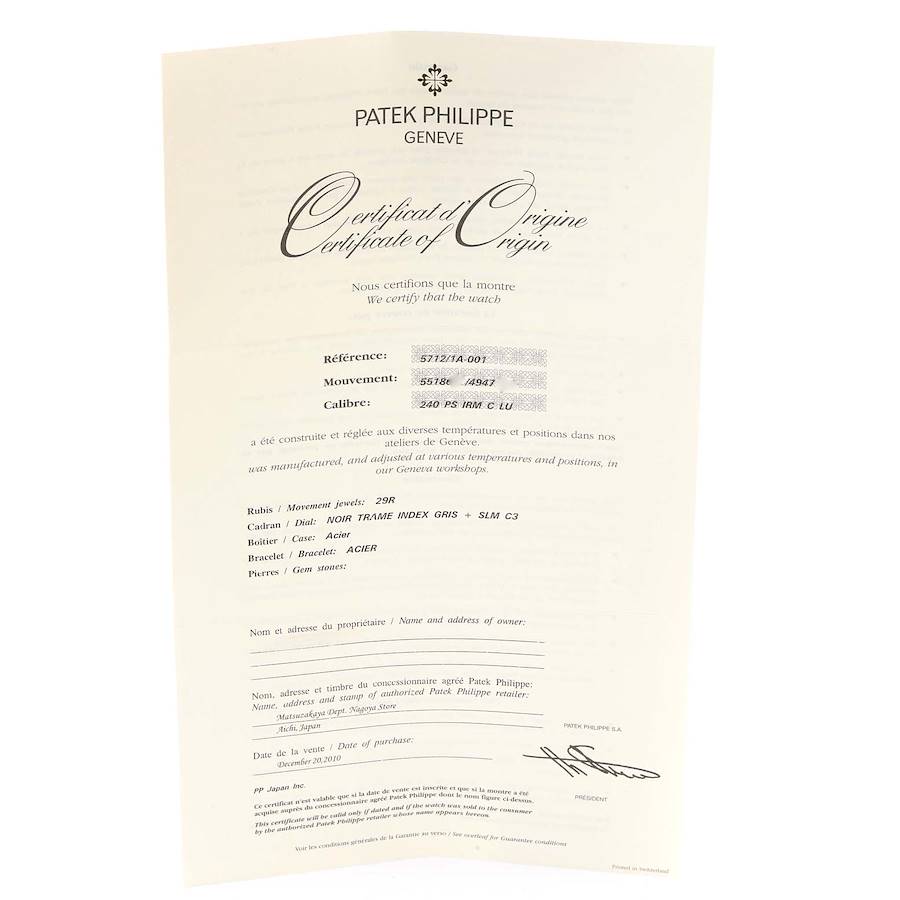 PATEK PHILIPPE
GENEVE
Certificat d'Origine
Certificate of Origin
Nous certifions que la montre
We certify that the watch
Référence: 5712/1A-001
Mouvement: 55186 /4947
Calibre: 240 PS IRM C LU
a été construite et réglée aux diverses températures et positions dans nos
ateliers de Genève.
was manufactured, and adjusted at various temperatures and positions, in
our Geneva workshops.
Rubis / Movement jewels: 29R
Cadran / Dial: NOIR TRAME INDEX GRIS + SLM C3
Boîtier / Case: Acier
Bracelet / Bracelet: ACIER
Pierres / Gem stones:
Nom et adresse du propriétaire / Name and address of owner:
Nom, adresse et timbre du concessionnaire agréé Patek Philippe:
Name, address and stamp of authorized Patek Philippe retailer:
Matsuzakaya Dept. Nagoya Store
Aichi, Japan
PATEK PHILIPPE S.A.
Date de la vente / Date of purchase:
December 20,2010
PP Japan Inc.
PRÉSIDENT
Ce certificat n'est valable que si la date de vente est inscrite et que si la montre a été
acquise auprès du concessionnaire agréé Patek Philippe dont le nom figure ci-dessus.
This certificate will be valid only if dated and if the watch was sold to the consumer
by the authorized Patek Philippe retailer whose name appears hereon.
Voir les conditions générales de la Garantie au verso / See overleaf for Guarantee conditions
Printed in Switzerland